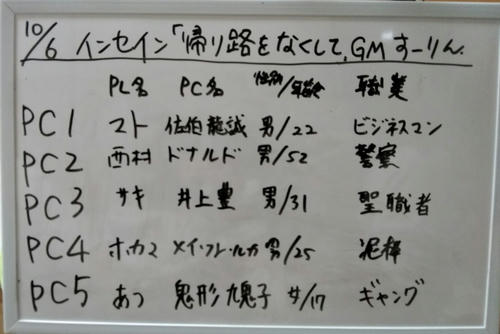 10/6 インセイン「帰り路をなくして、GMすーりん.
PL名 PC名 性別/年齢 職業
PC1 マト 佐伯龍誠 男/22 ビジネスマン
PC2 西村 ドナルド 男/52 警察
PC3 サキ 井上豊 男/31 聖職者
PC4 ホカマ 男/25 泥棒
PC5 あつ 鬼形 子 女/17 ギャング